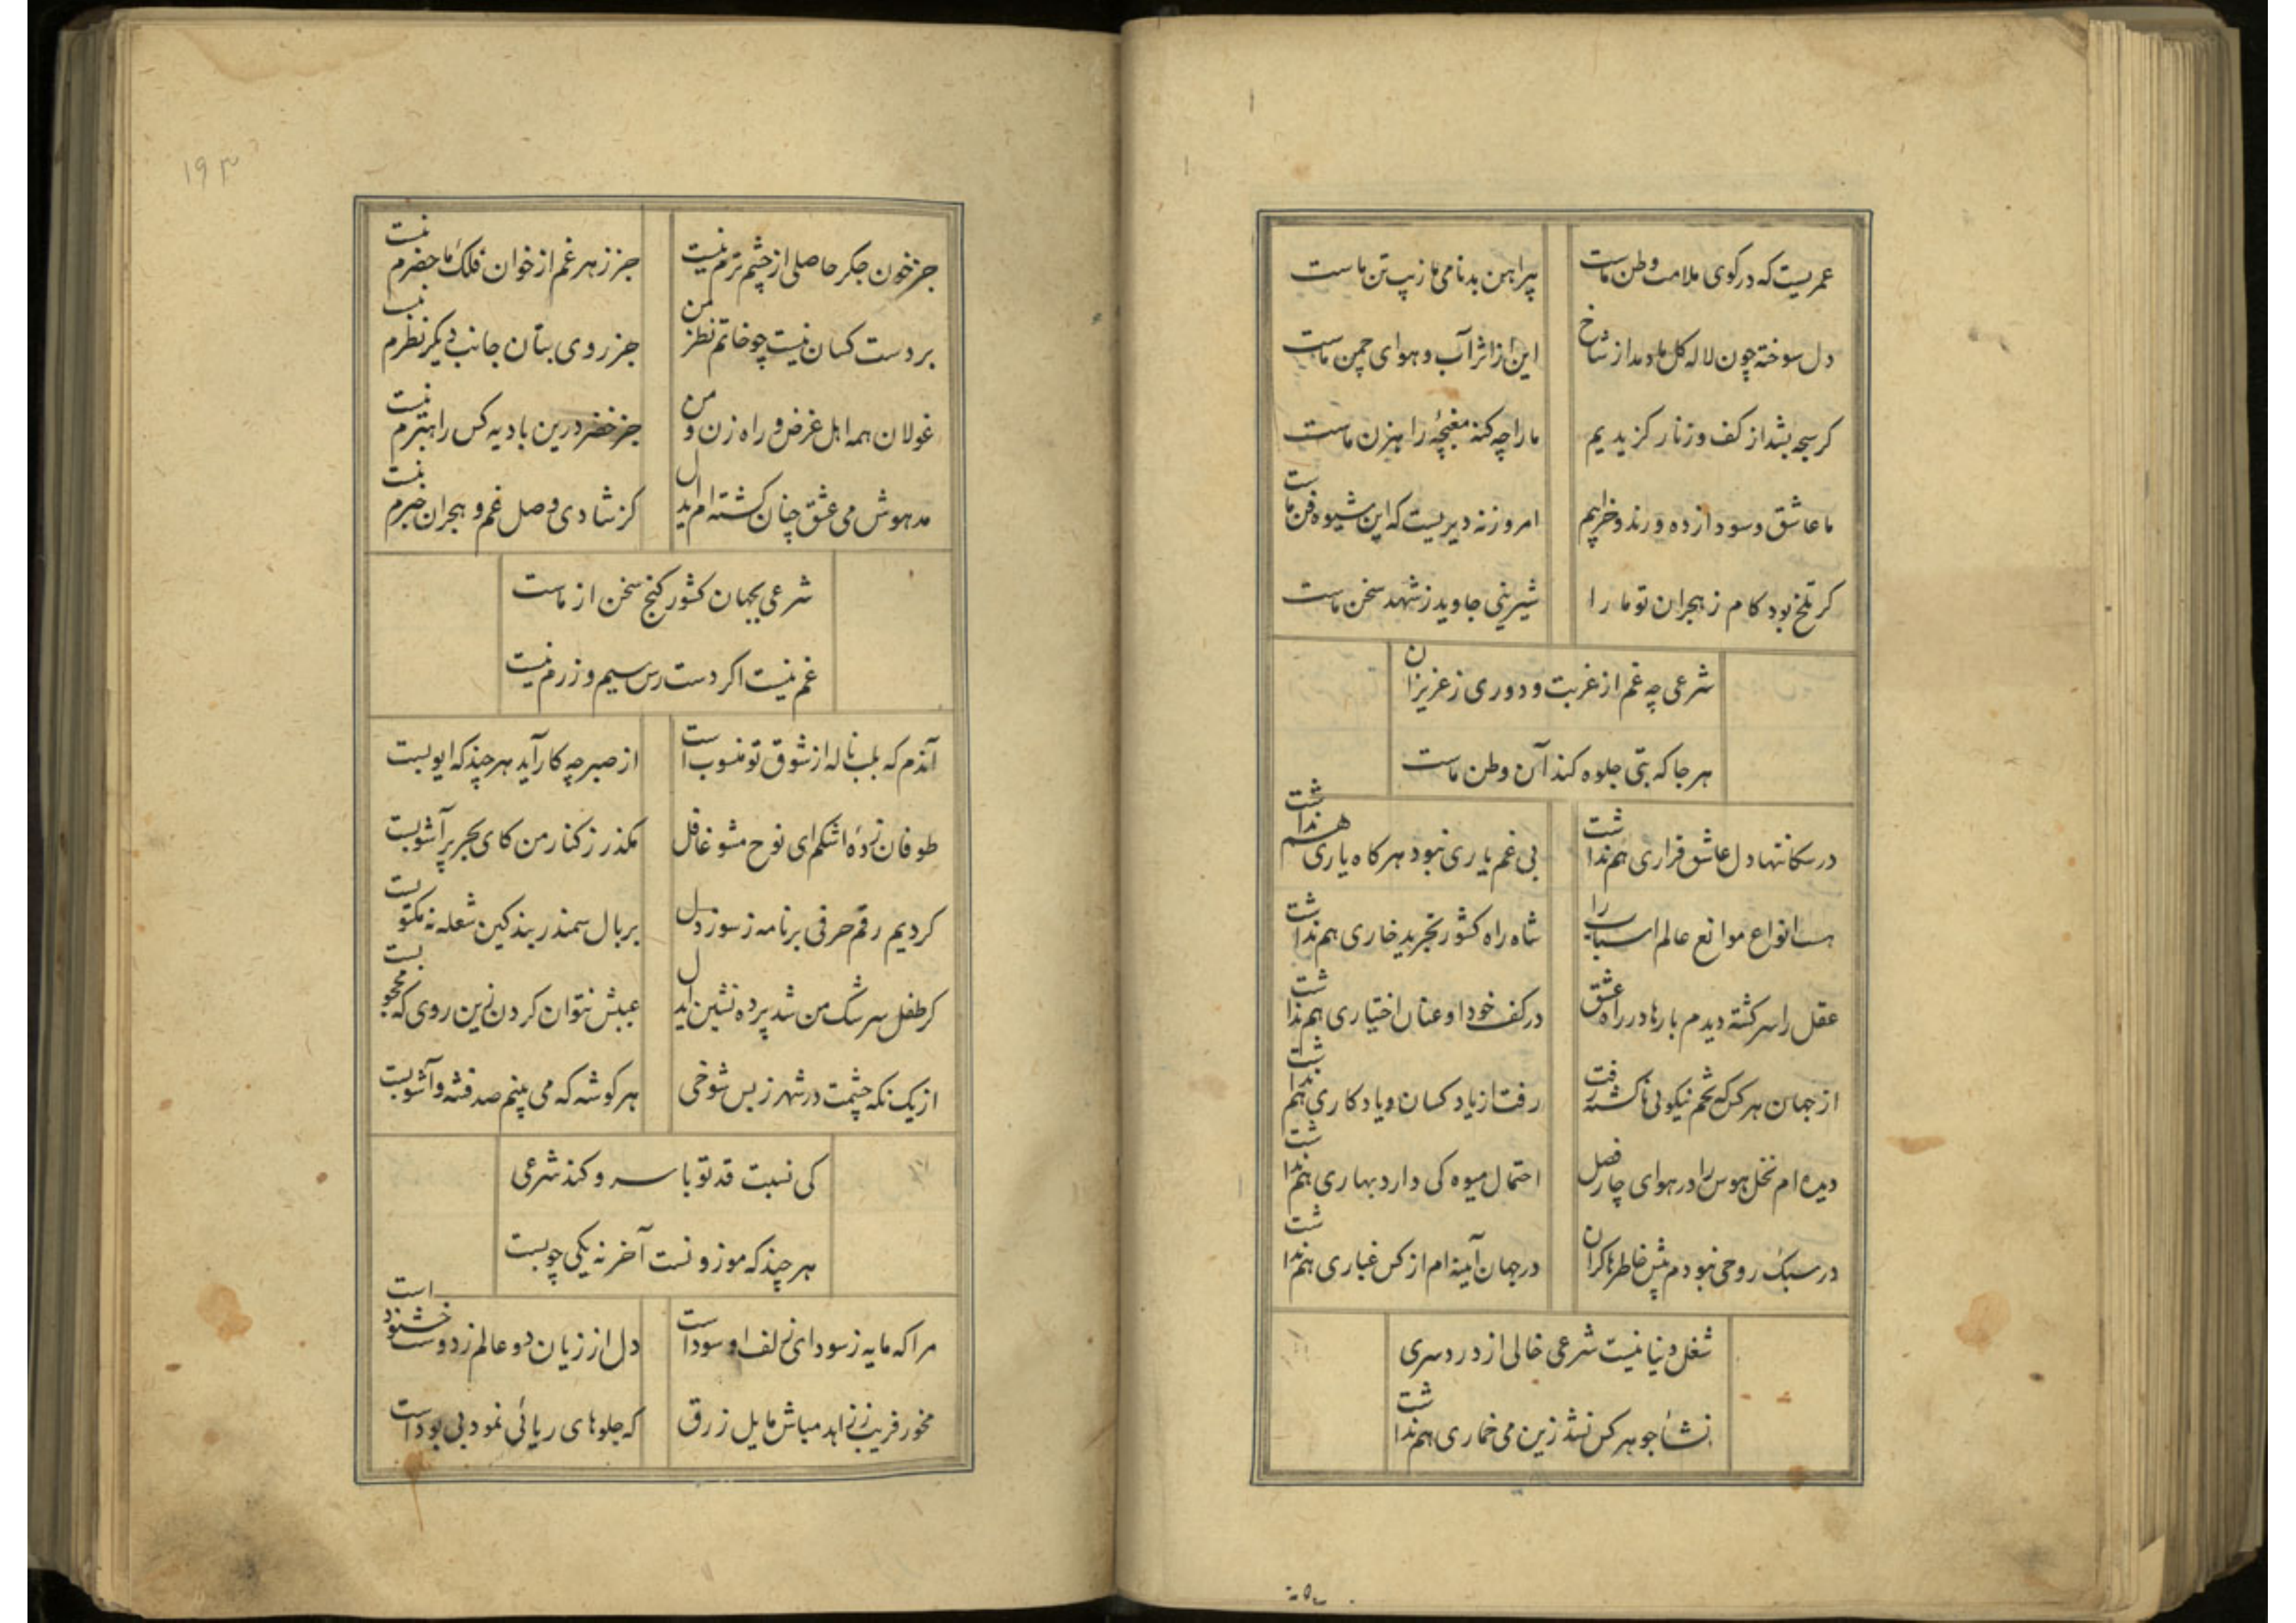 عمریست که در کوی ملامت وطن ماست
پیراهن بدنامی ما زیب تن ماست
دل سوخته چون لاله کل ما دمد از شاخ
این از اثر آب و هوای چمن ماست
کر سبحه بشد از کف و زنار کزیدیم
ما را چه کند مغبچهٔ راهزن ماست
ما عاشق و سودازده و رند و خرابیم
امروز نه دیریست که این شیوه فن ماست
کر تلخ بود کام ز هجران تو ما را
شیرینی جاوید ز شهد سخن ماست
شرعی چه غم از غربت و دوری ز عزیزان
هر جا که بتی جلوه کند آن وطن ماست
در تنها دل عاشق قراری هم نداشت
بی غم یاری نبود هر کاه یاری هم نداشت
انواع موانع عالم اسباب را
شاه راه کشور تجرید خاری هم نداشت
عقل را سرکشته دیدم بارها در راه عشق
در کف خود او عنان اختیاری هم نداشت
از جهان هر کس که تخم نیکویی ناکشته رفت
رفت از یاد کسان و یادکاری هم نداشت
دیده ام نخل هوس را در هوای چار فصل
احتمال میوه کی دارد بهاری هم نداشت
در سبک روحی نبودم پیش خاطرها کران
در جهان آیینه ام از کس غباری هم نداشت
شغل دنیا نیست شرعی خالی از دردسری
نشاء جو هر کس نشد زین می خماری هم نداشت
۱۹۳
جز خون جکر حاصلی از چشم ترم نیست
جز زهر غم از خوان فلک ماحضرم نیست
بر دست کسان نیست چو خاتم نظر من
جز روی بتان جانب دیکر نظرم نیست
غولان همه اهل غرض و راه زن و من
جز خضر درین بادیه کس راهبرم نیست
مدهوش می عشق چنان کشته ام ایدل
کز شادی وصل و غم هجران خبرم نیست
شرعی بجهان کشور کنج سخن از ماست
غم نیست اکر دست رس سیم و زرم نیست
آندم که بلب ناله از شوق تو منسوب است
از صبر چه کار آید هر چند که ایوبست
طوفان زدهٔ اشکم ای نوح مشو غافل
مکذر ز کنار من کای بحر پر آشوبست
کردیم رقم حرفی بر نامه ز سوز دل
بر بال سمندر بند کین شعله نه مکتوبست
کر طفل سرشک من شد پرده نشین ایدل
عیبش نتوان کردن زین روی که محجوبست
از یک نکه چشمت در شهر ز بس شوخی
هر کوشه که می بینم صد فتنه و آشوبست
کی نسبت قد تو با سرو کند شرعی
هر چند که موزونست آخر نه یکی چوبست
مرا که مایه ز سودای زلف او سوداست
دل از زیان دو عالم ز دوست خشنود است
مخور فریب ز زاهد مباش مایل زرق
که جلوهای ریائی نمود بی بود است